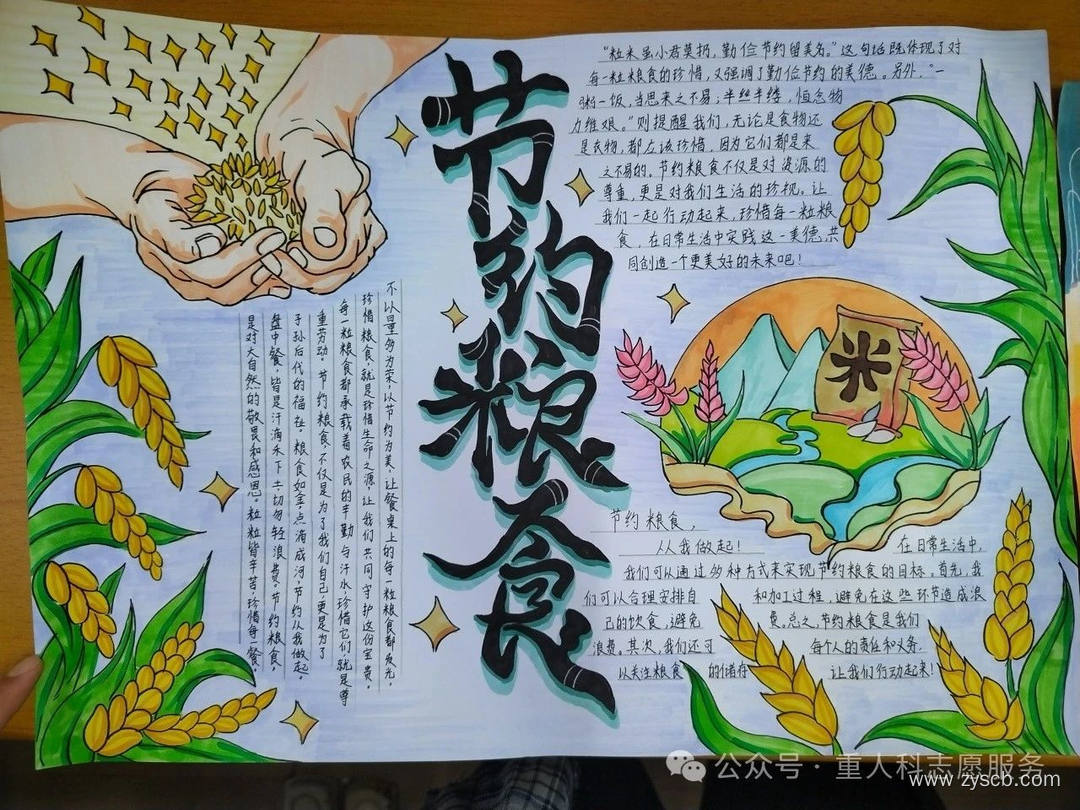 节约粮食
"粒米虽小君莫扔,勤俭节约留美名。"这句话既体现了对
每一粒粮食的珍惜,又强调了勤俭节约的美德。另外,"一
粥一饭,当思来之不易;半丝半缕,恒念物
力维艰。"则提醒我们,无论是食物还
是衣物,都应该珍惜,因为它们都是来
之不易的。节约粮食不仅是对资源的
尊重,更是对我们生活的珍视。让
我们一起行动起来,珍惜每一粒粮
食,在日常生活中实践这一美德,共
同创造一个更美好的未来吧!
不以量多为荣,以节约为美,让餐桌上的每一粒粮食都发光。
珍惜粮食,就是珍惜生命之源,让我们共同守护这份宝贵。
每一粒粮食都承载着农民的辛勤与汗水,珍惜它们就是尊
重劳动。节约粮食,不仅是为了我们自己,更是为了
子孙后代的福祉。粮食如金,点滴成河,节约从我做起。
盘中餐,皆是汗滴禾下土,切勿轻浪费。节约粮食,
是对大自然的敬畏和感恩。粒粒皆辛苦,珍惜每一餐。
米
节约粮食,
从从我做起!
在日常生活中,
我们可以通过多种方式来实现节约粮食的目标。首先,我
们可以合理安排自
己的饮食,避免
浪费。其次,我们还可
以关注粮食的储存
和加工过程,避免在这些环节造成浪
费。总之,节约粮食是我们
每个人的责任和义务,
让我们行动起来!
公众号·重人科志愿服务
www.zyscb.com